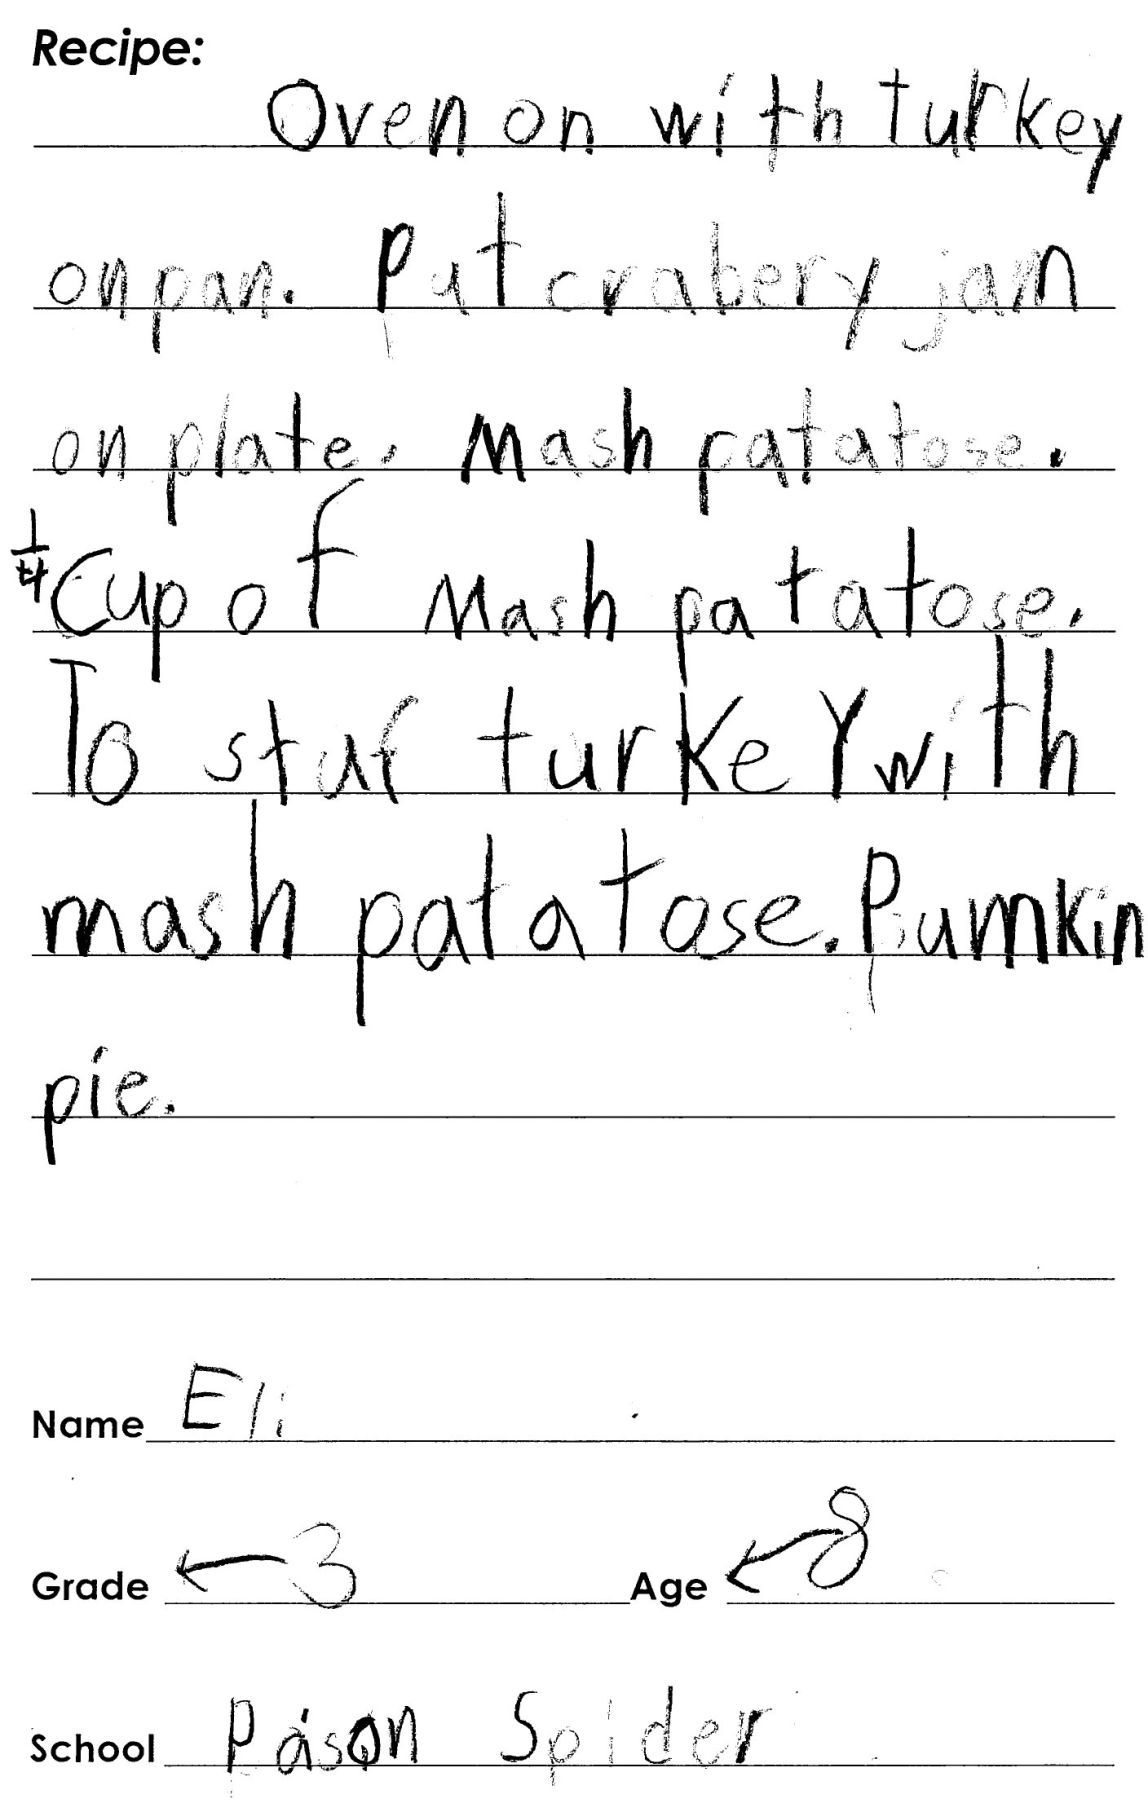 Recipe:
Oven on with turkey
on pan. Put crabery jam
on plate. Mash patatose.
1/4 Cup of Mash patatose.
To stuf turkey with
mash patatose. Pumkin
pie.
Name Eli
Grade 3 Age 8
School Pason Spider